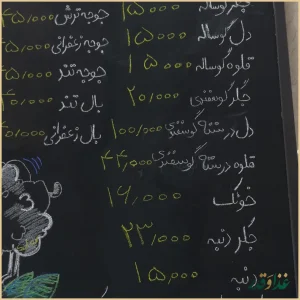 جگر گوساله ۱۵۰۰۰
دل گوساله ۱۵۰۰۰
قلوه گوساله ۱۵۰۰۰
جگر گوسفندی ۲۰/۰۰۰
دل درسته گوسفندی ۱۰۰/۰۰۰
قلوه درسته گوسفندی ۴۴/۰۰۰
خوئک ۱۶/۰۰۰
جگر دنبه ۲۳/۰۰۰
دنبه ۱۵/۰۰۰
جوجه ترش ۴۵/۰۰۰
جوجه زعفرانی
جوجه تند
بال تند
بال زعفرانی